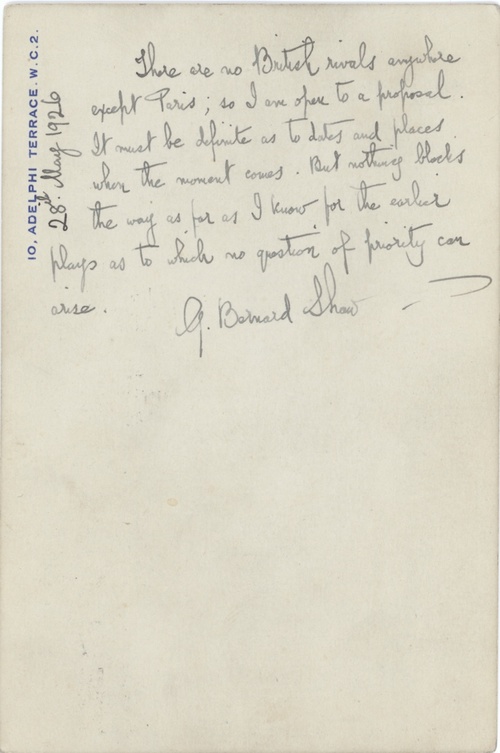 10, ADELPHI TERRACE. W.C.2.
28th May 1926
There are no British rivals anywhere
except Paris; so I am open to a proposal.
It must be definite as to dates and places
when the moment comes. But nothing blocks
the way as far as I know for the earlier
plays as to which no question of priority can
arise.
G. Bernard Shaw